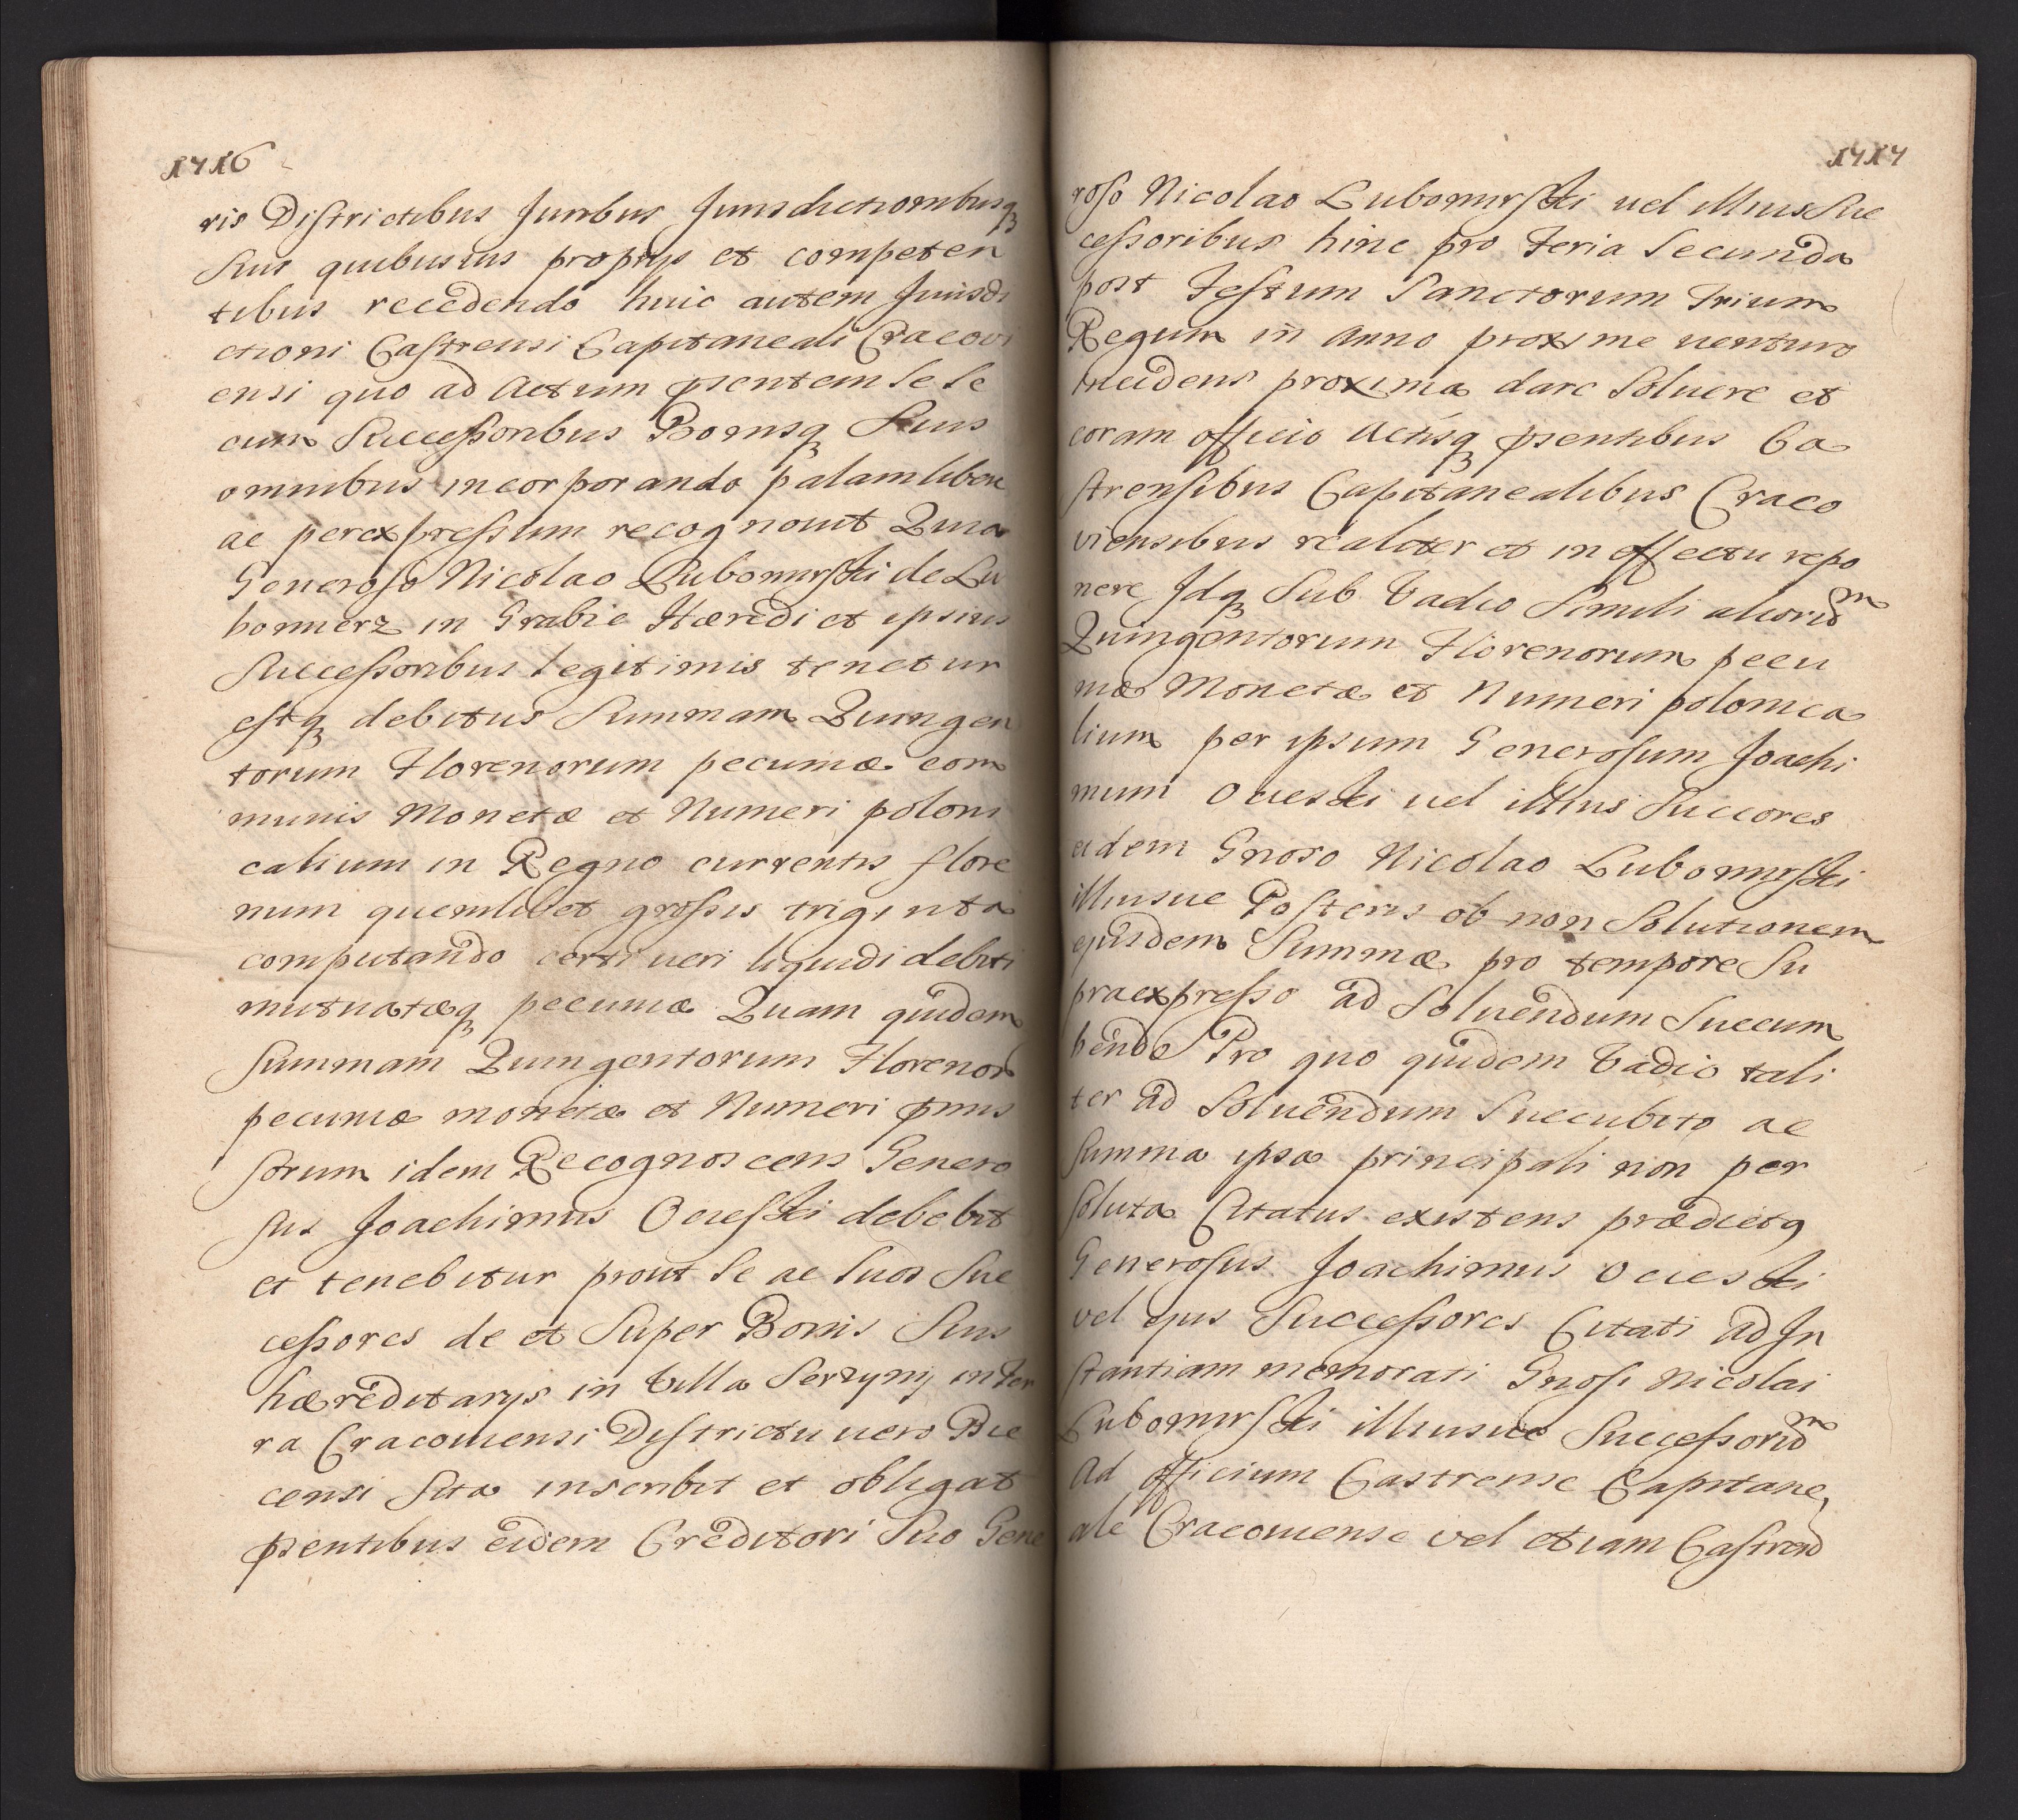 1716
ris Districtibus Juribus Jurisdictionibusq
Suis quibusuis proprijs et competen
tibus recedendo huic autem Jurisdi
ctioni Castrensi Capitaneali Cracovi
ensi quo ad Actum pñtem se se
cum Successoribus Bonisq Suis
omnibus incorporando palam libere
ac per expressum recognouit Quia
Generoso Nicolao Lubomirski de Lu
bomierz in Grabie Hæredi et ipsius
Successoribus legitimis tenetur
estq debitus Summam Quingen
torum Florenorum pecuniæ com
munis Monetæ et Numeri poloni
calium in Regno currentis flore
num quemlibet grossis triginta
computando certi ueri liquidi debiti
mutuatæq pecuniæ Quam quidem
Summam Quingentorum Florenor
pecuniæ monetæ et Numeri pmis
sorum idem Recognoscens Genero
sus Joachimus Ocieski debebit
et tenebitur prout se ac suos Suc
cessores de et Super Bonis Suis
hæreditarys in Villa Serzynij in ter
ra Cracouiensi Districtu uero Bie
censi Sita inscribit et obligat
pñtibus eidem Creditori Suo Gene
1717
roso Nicolao Lubomirski uel illius Suc
cessoribus hinc pro Feria Secunda
post Festum Sanctorum Trium
Regum in Anno proxime uenturo
incidens proxima dare Soluere et
coram officio Actisq pñtibus Ca
strensibus Capitanealibus Craco
viensibus realiter et in effectu repo
nere Idq Sub Vadio Simili aliorum
Quingentorum Florenorum pecu
niæ Monetæ et Numeri polonica
lium per ipsum Generosum Joachi
mum Ocieski uel illius Succores
eidem Gnoso Nicolao Lubomirski
illiusue Posteris ob non Solutionem
ejusdem Summæ pro tempore Su
praexpresso ad Soluendum Succum
bendo Pro quo quidem Vadio tali
ter ad Soluendum Succubito ac
Summa ipsa principali non per
soluta Citatus existens prædictq
Generosus Joachimus Ocieski
vel ejus Successores Citati ad In
stantiam memorati Gnosi Nicolai
Lubomirski illiusue Successorum
Ad officium Castrense Capitane
ale Cracouiense vel etiam Castren